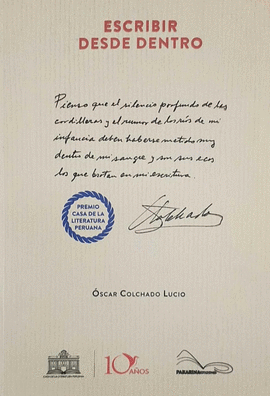 ESCRIBIR
DESDE DENTRO
Pienso que el silencio profundo de las
cordilleras y el rumor de los ríos de mi
infancia deben haberse metido muy
dentro de mi sangre y son sus ecos
los que brotan en mi escritura.
PREMIO
CASA DE LA
LITERATURA
PERUANA
ÓSCAR COLCHADO LUCIO
CASA DE LA LITERATURA PERUANA
10 AÑOS
PAKARINA